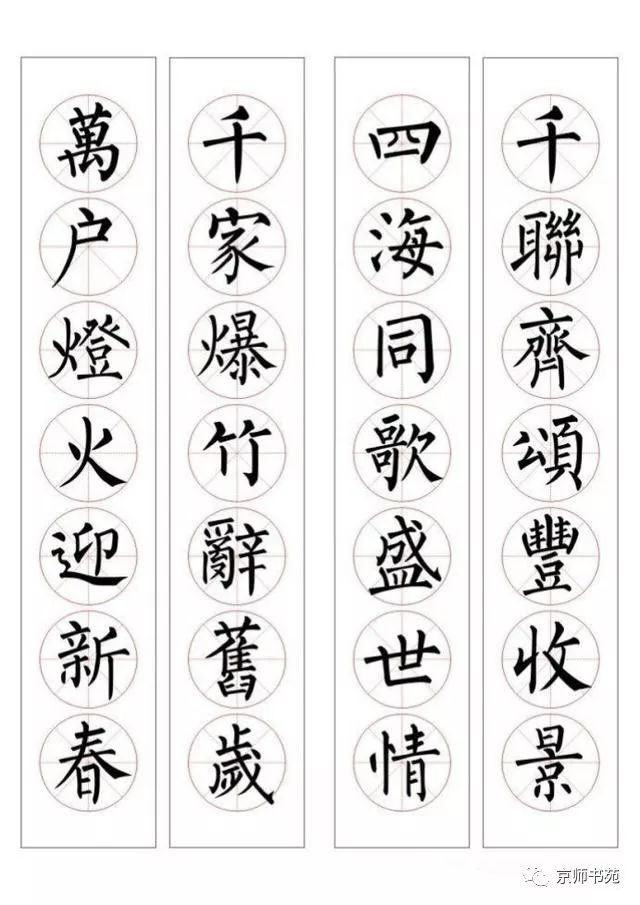 千聯齊頌豐收景
四海同歌盛世情
千家爆竹辭舊歲
萬户燈火迎新春
京师书苑